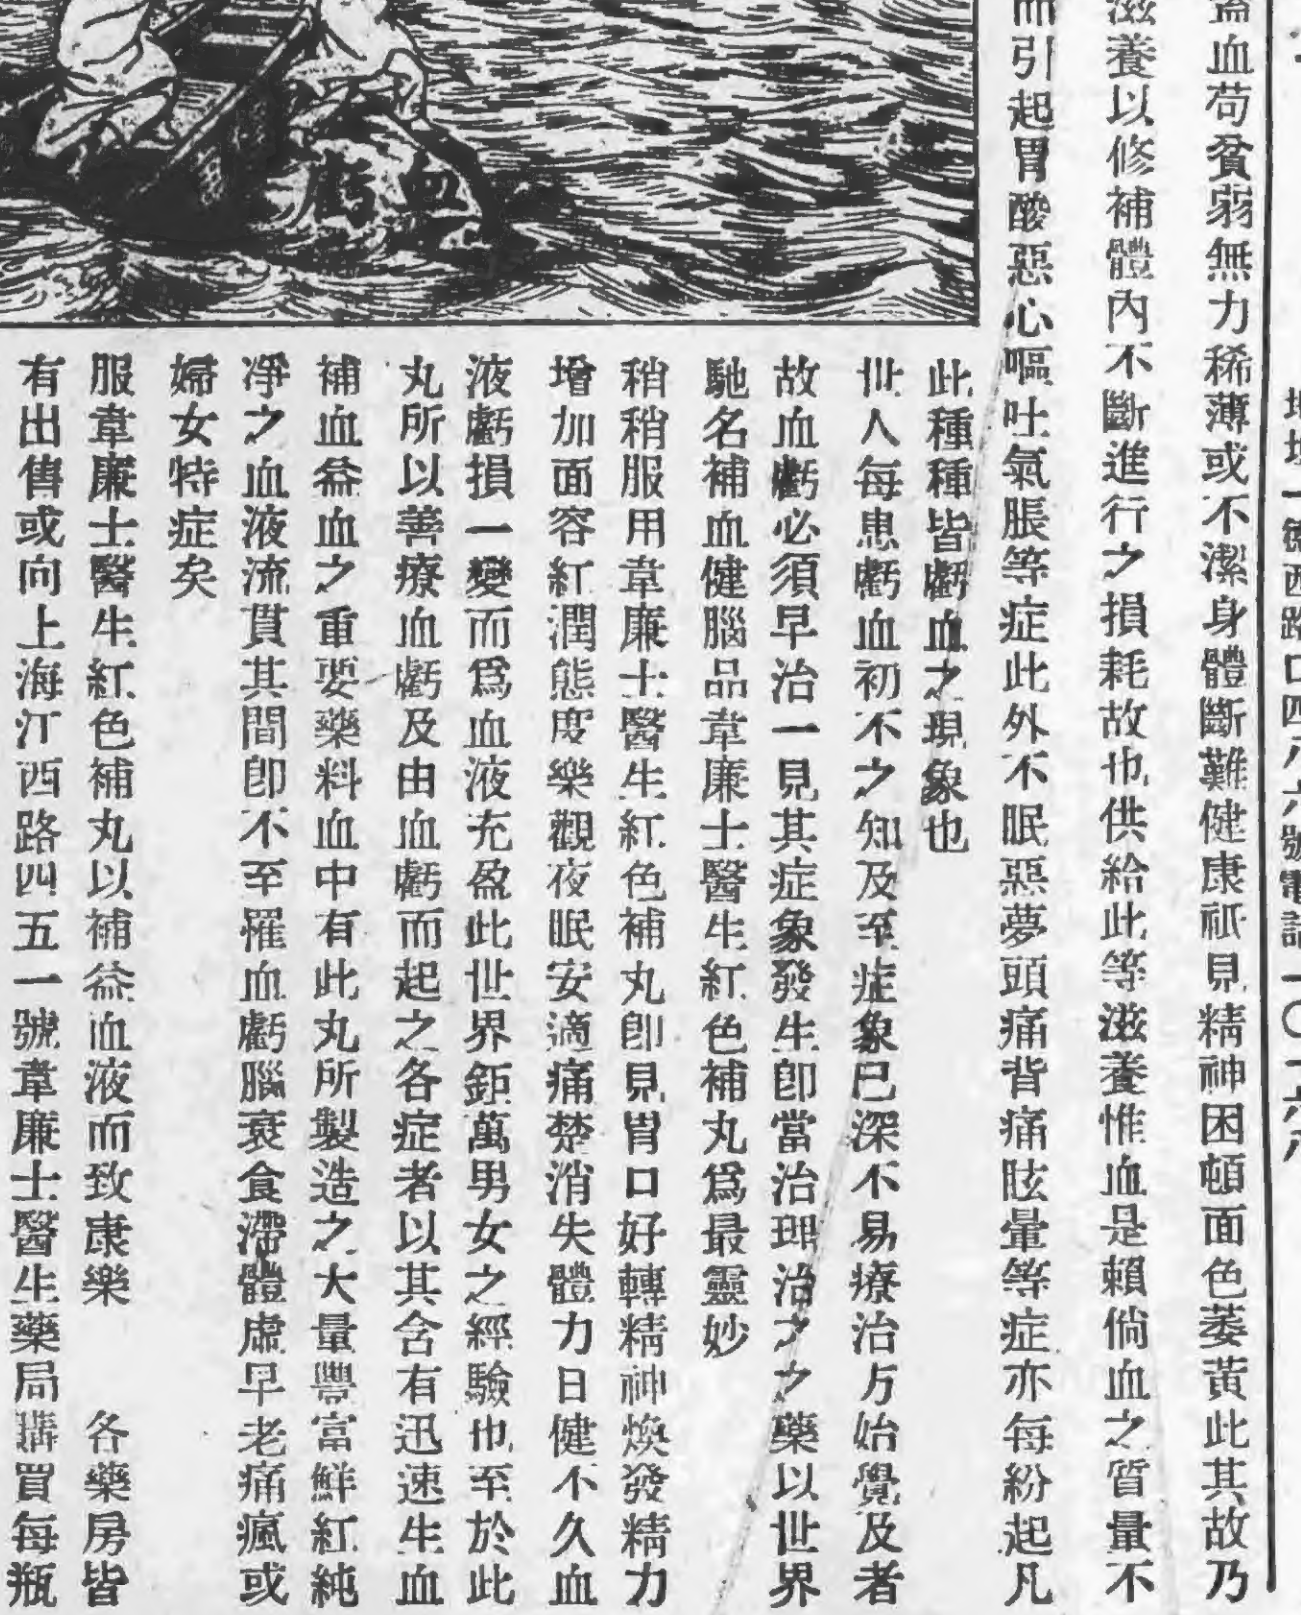 血苟貧弱無力稀薄或不潔身體斷難健康祇見精神困頓面色萎黃此其故乃
滋養以修補體內不斷進行之損耗故也供給此等滋養惟血是賴倘血之質量不
而引起胃酸惡心嘔吐氣脹等症此外不眠惡夢頭痛背痛眩暈等症亦每紛起凡
此種種皆虧血之現象也
世人每患虧血初不之知及至症象已深不易療治方始覺及者
故血虧必須早治一見其症象發生卽當治理治之之藥以世界
馳名補血健腦品韋廉士醫生紅色補丸爲最靈妙
稍稍服用韋廉士醫生紅色補丸卽見胃口好轉精神煥發精力
增加面容紅潤態度樂觀夜眠安適痛楚消失體力日健不久血
液虧損一變而爲血液充盈此世界鉅萬男女之經驗也至於此
丸所以善療血虧及由血虧而起之各症者以其含有迅速生血
補血益血之重要藥料血中有此丸所製造之大量豐富鮮紅純
凈之血液流貫其間卽不至罹血虧腦衰食滯體虛早老痛瘋或
婦女特症矣
服韋廉士醫生紅色補丸以補益血液而致康樂　各藥房皆
有出售或向上海江西路四五一號韋廉士醫生藥局購買每瓶
血虧